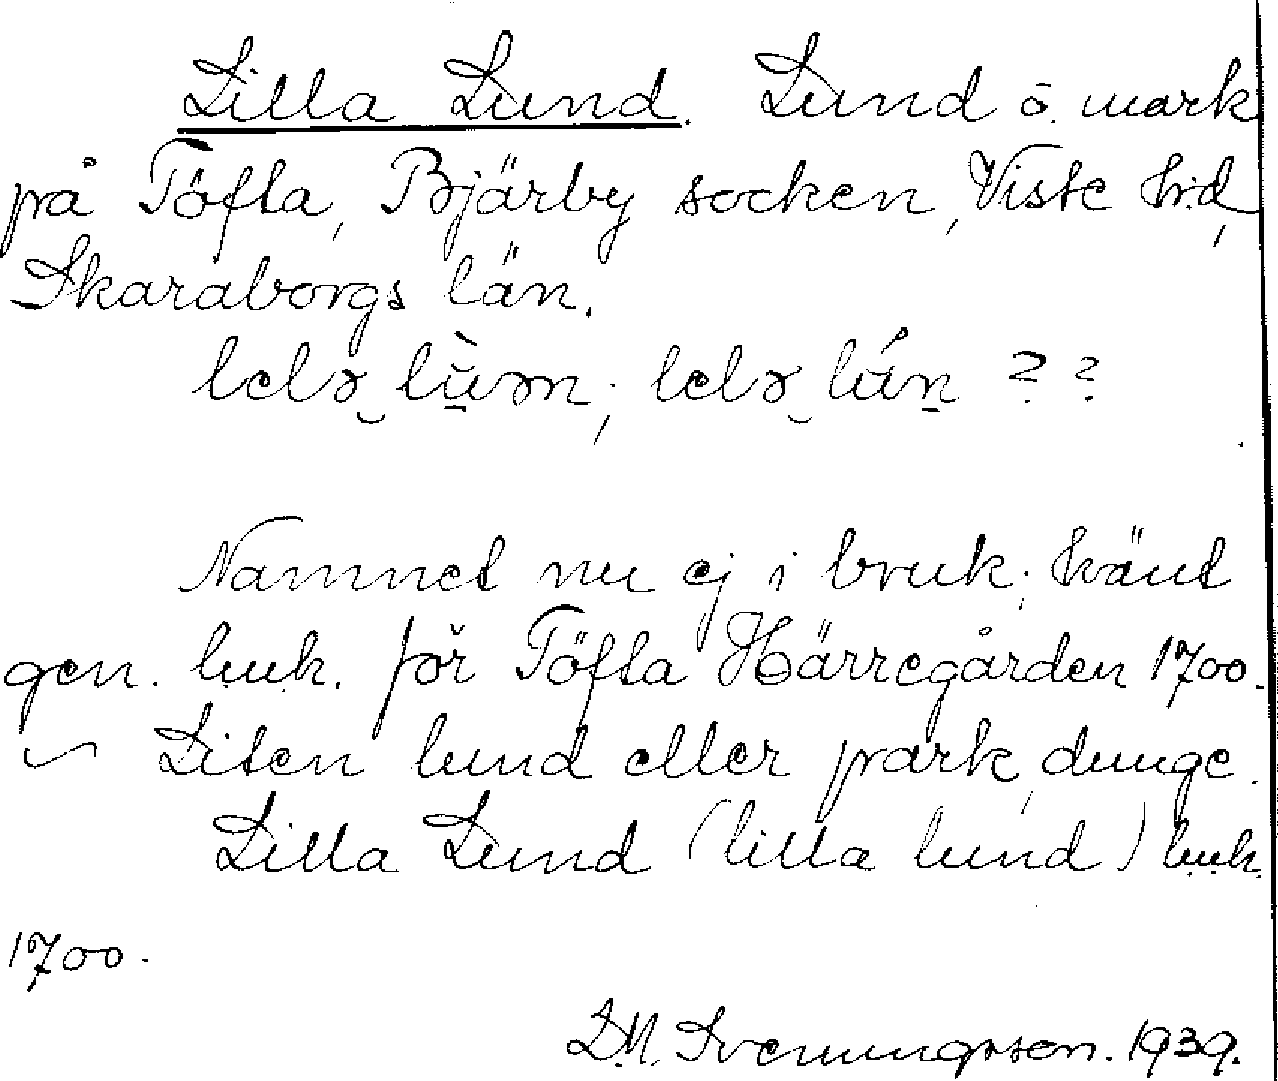 Lilla Lund. Lund ö. mark
på Töfta, Bjärby socken, Viste hrd,
Skaraborgs län.
Namnet nu ej i bruk; känt
gen. luk. för Töfta Härregården 1700.
Liten lund eller park, dunge.
Lilla Lund (lilla lund) luk.
1700.
D.M. Svenungsson. 1939.